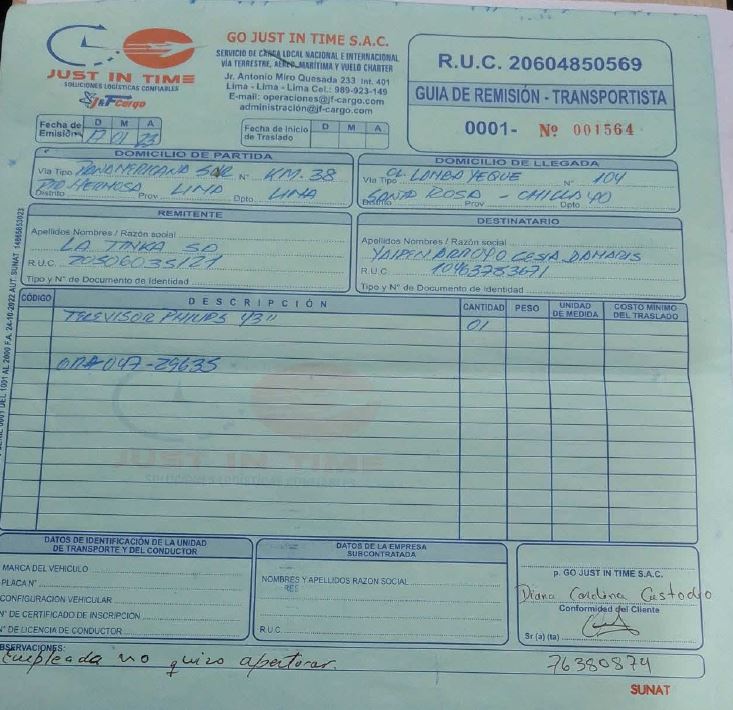 JUST IN TIME
SOLUCIONES LOGÍSTICAS CONFIABLES
J&F Cargo
GO JUST IN TIME S.A.C.
SERVICIO DE CARGA LOCAL NACIONAL E INTERNACIONAL
VÍA TERRESTRE, AEREO, MARÍTIMA Y VUELO CHARTER
Jr. Antonio Miro Quesada 233 Int. 401
Lima - Lima - Lima Cel.: 989-923-149
E-mail: operaciones@jf-cargo.com
administración@jf-cargo.com
R.U.C. 20604850569
GUIA DE REMISIÓN - TRANSPORTISTA
0001- Nº 001564
Fecha de Emisión D M A
17 01 23
Fecha de Inicio de Traslado D M A
DOMICILIO DE PARTIDA
Vía Tipo PANAMERICANA SUR N° KM. 38
PTO HERMOSA LIMA LIMA
Distrito Prov. Dpto.
DOMICILIO DE LLEGADA
Vía Tipo CL. LAMBAYEQUE N° 104
SANTA ROSA - CHICLAYO
Distrito Prov. Dpto.
REMITENTE
Apellidos Nombres / Razón social
LA TINKA SA
R.U.C. 20506035121
Tipo y N° de Documento de Identidad
DESTINATARIO
Apellidos Nombres / Razón social
YAIPEN ARROYO CESIA DAMARIS
R.U.C. 10463783671
Tipo y N° de Documento de Identidad
CÓDIGO DESCRIPCIÓN CANTIDAD PESO UNIDAD DE MEDIDA COSTO MÍNIMO DEL TRASLADO
TELEVISOR PHILIPS 43" 01
047-29635
JUST IN TIME
SOLUCIONES LOGÍSTICAS CONFIABLES
DATOS DE IDENTIFICACIÓN DE LA UNIDAD
DE TRANSPORTE Y DEL CONDUCTOR
MARCA DEL VEHICULO
PLACA N°
CONFIGURACIÓN VEHICULAR
N° DE CERTIFICADO DE INSCRIPCION
N° DE LICENCIA DE CONDUCTOR
DATOS DE LA EMPRESA
SUBCONTRATADA
NOMBRES Y APELLIDOS RAZON SOCIAL
R.U.C.
p. GO JUST IN TIME S.A.C.
Diana Carolina Custodio
Conformidad del Cliente
Sr (a) (ta)
OBSERVACIONES:
Empleada no quizo aperturar. 76380874
SUNAT